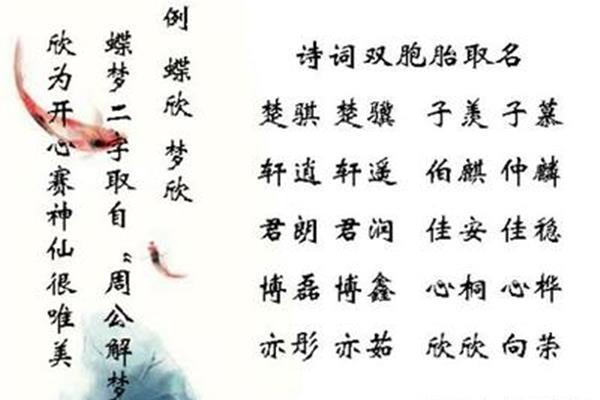 例 蝶欣 梦欣
蝶梦二字取自“周公解梦
欣为开心赛神仙很唯美
诗词双胞胎取名
楚骐 楚骥 子羡 子慕
轩逍 轩遥 伯麒 仲麟
君朗 君润 佳安 佳稳
博磊 博鑫 心桐 心桦
亦彤 亦茹 欣欣 向荣